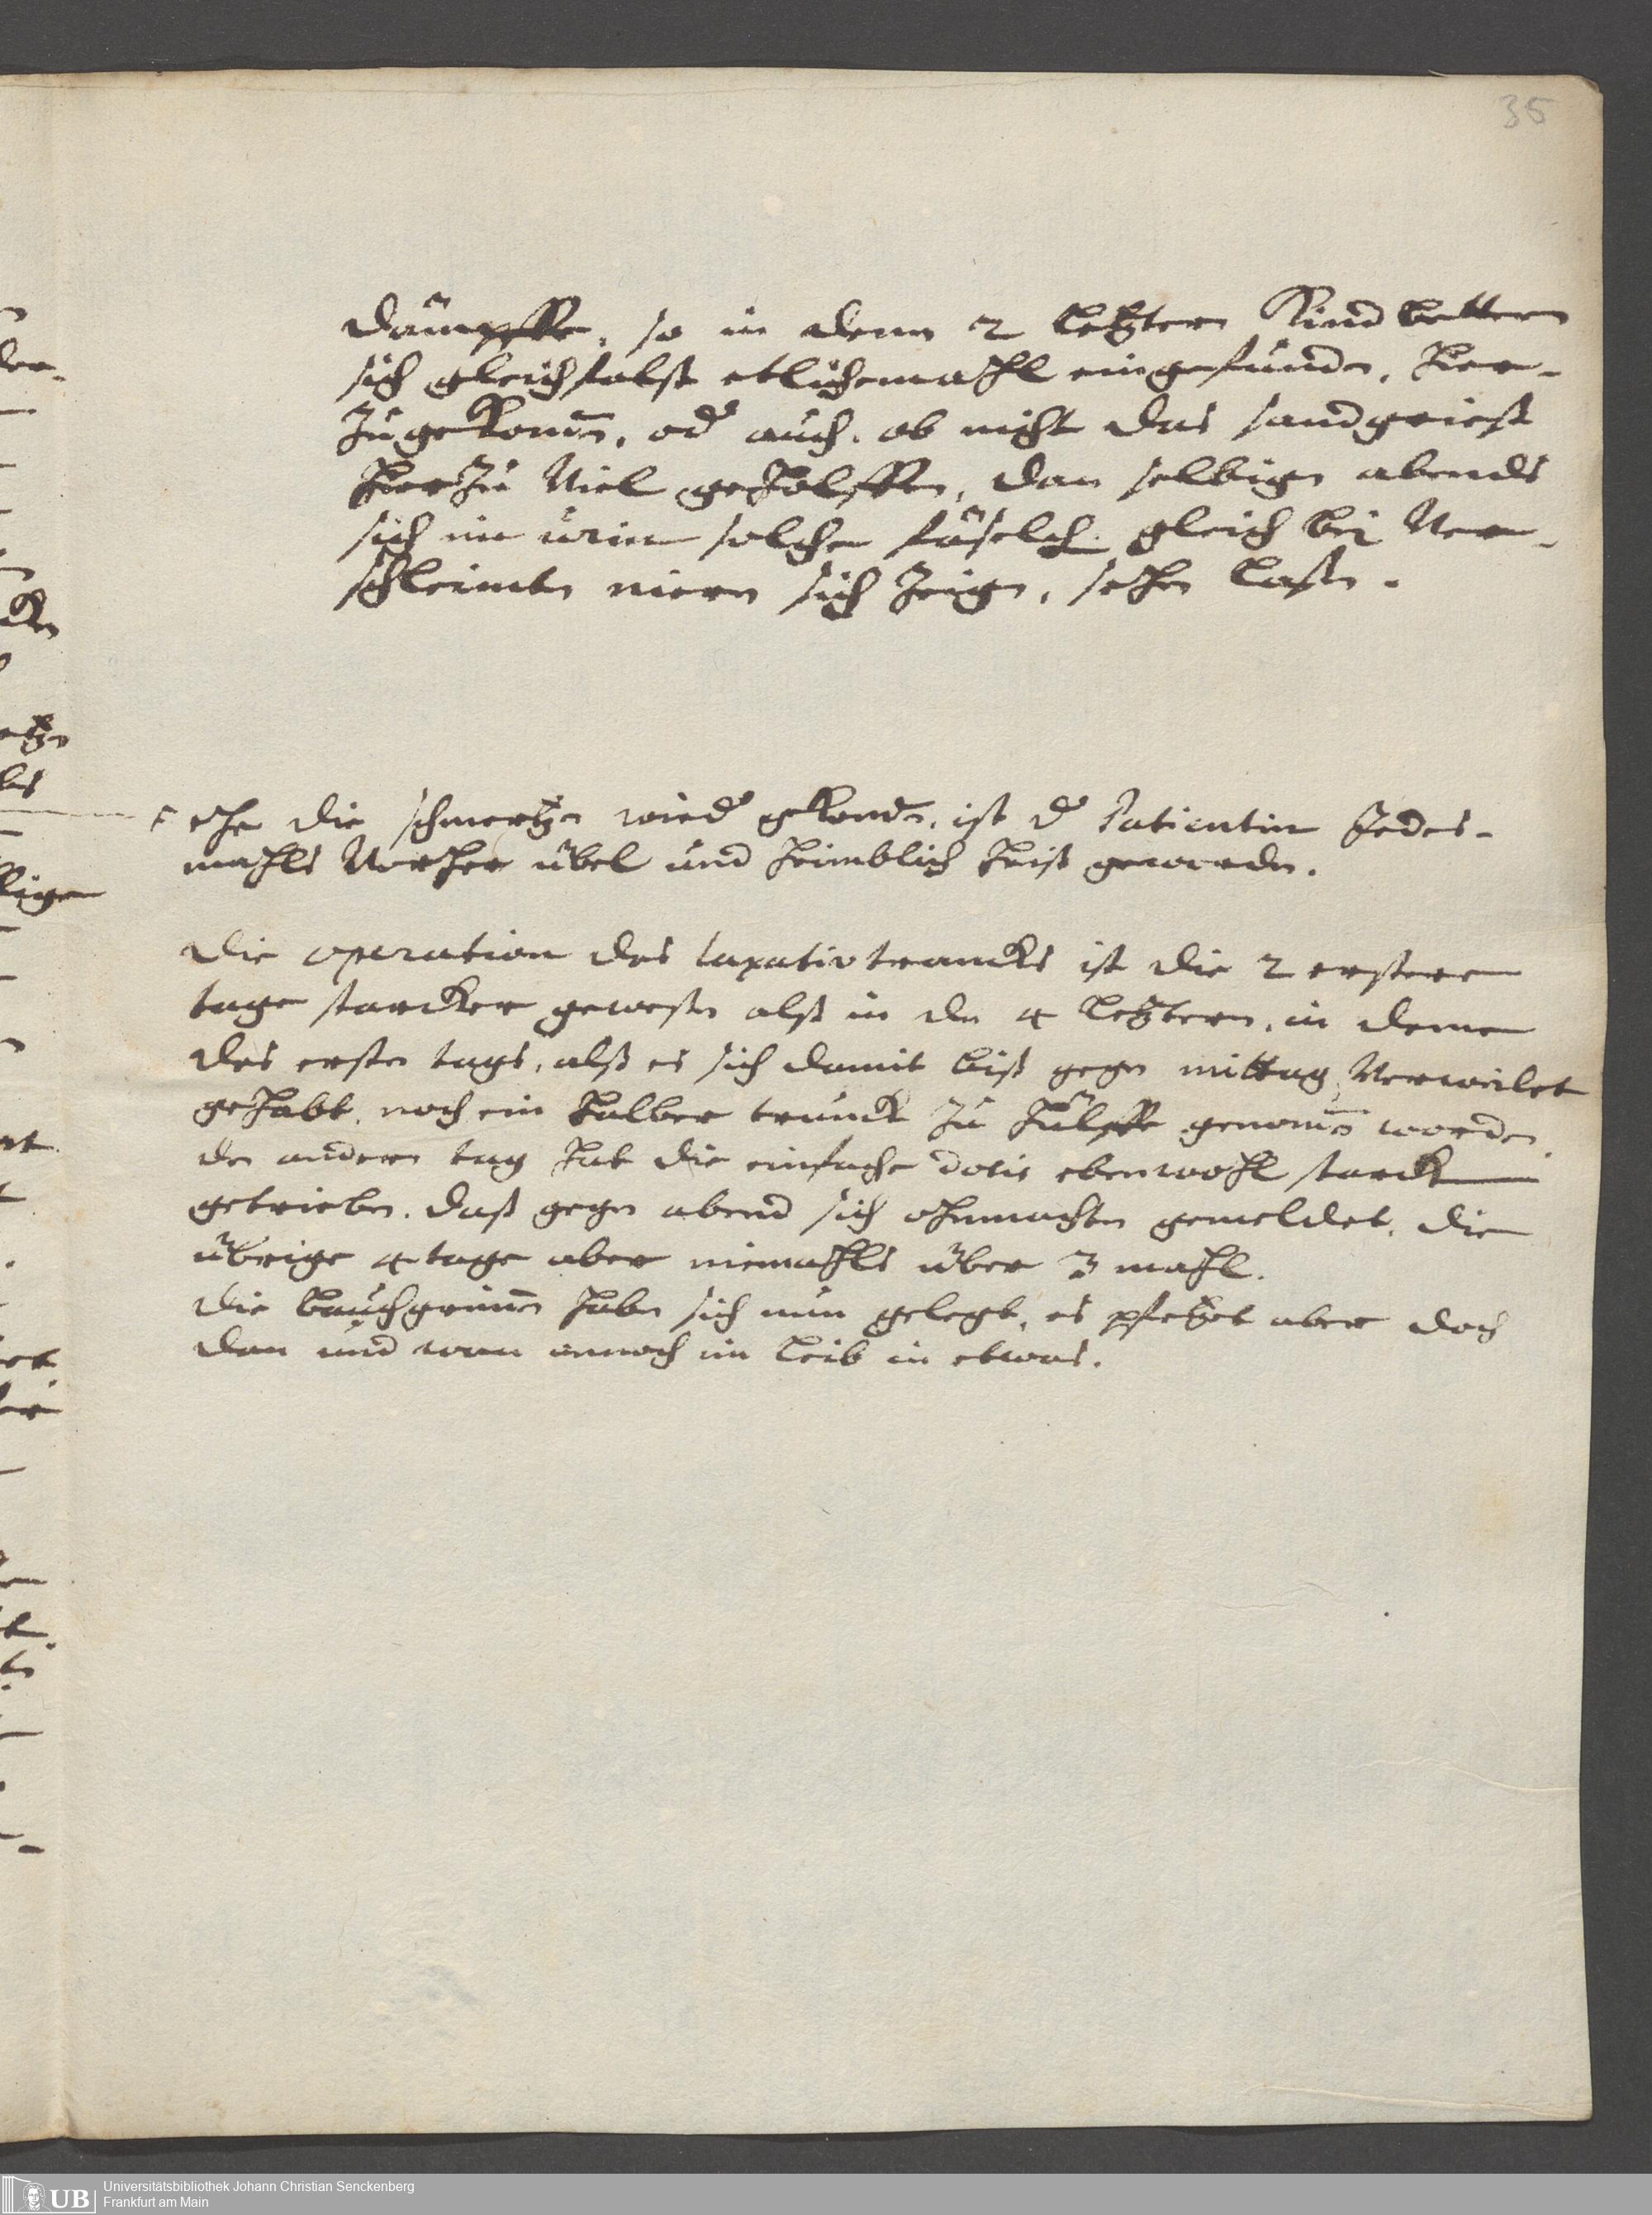 35
dämpffe, so in denen 2 letztern Kind bettern
sich gleichfalß etlichemahl eingefunden, hier-
zu gekomen, od auch, ob nicht das sandgrieß
hierzu Viel geholffen, dan selbigen abends
sich im urin solche fäselch. gleich bei Ver-
schleimten niern sich zeigen, sehen laßen.
ehe die schmertzen wied gekomen, ist d Patientin Jedes-
mahls Vorher übel und heimblich heiß geworden.
die operation des laxativ trancks ist die 2 erstere
tage starcker geweßen alß in den 4 letztern, in denen
des ersten tags, alß es sich damit biß gegen mittag Verweilet
gehabt, noch ein halber trunck zu hülffe genomen worden.
den andern tag hat die einfache dosis ebenwohl starck
getrieben, daß gegen abend sich ohnmachten gemeldet, die
übrige 4 tage aber niemahls über 3 mahl.
die bauchgrimen haben sich nun gelegt, es pfetzet aber doch
dan und wan annoch im leib in etwas.
UB
Universitätsbibliothek Johann Christian Senckenberg
Frankfurt am Main